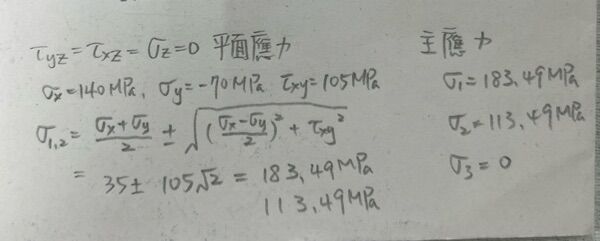 τyz = τxz = σz = 0 平面應力
σx = 140MPa, σy = -70MPa τxy = 105MPa
σ1,2 = (σx+σy)/2 ± √((σx-σy)/2)² + τxy²
= 35 ± 105√2 = 183.49MPa
113.49MPa
主應力
σ1 = 183.49MPa
σ2 = 113.49MPa
σ3 = 0